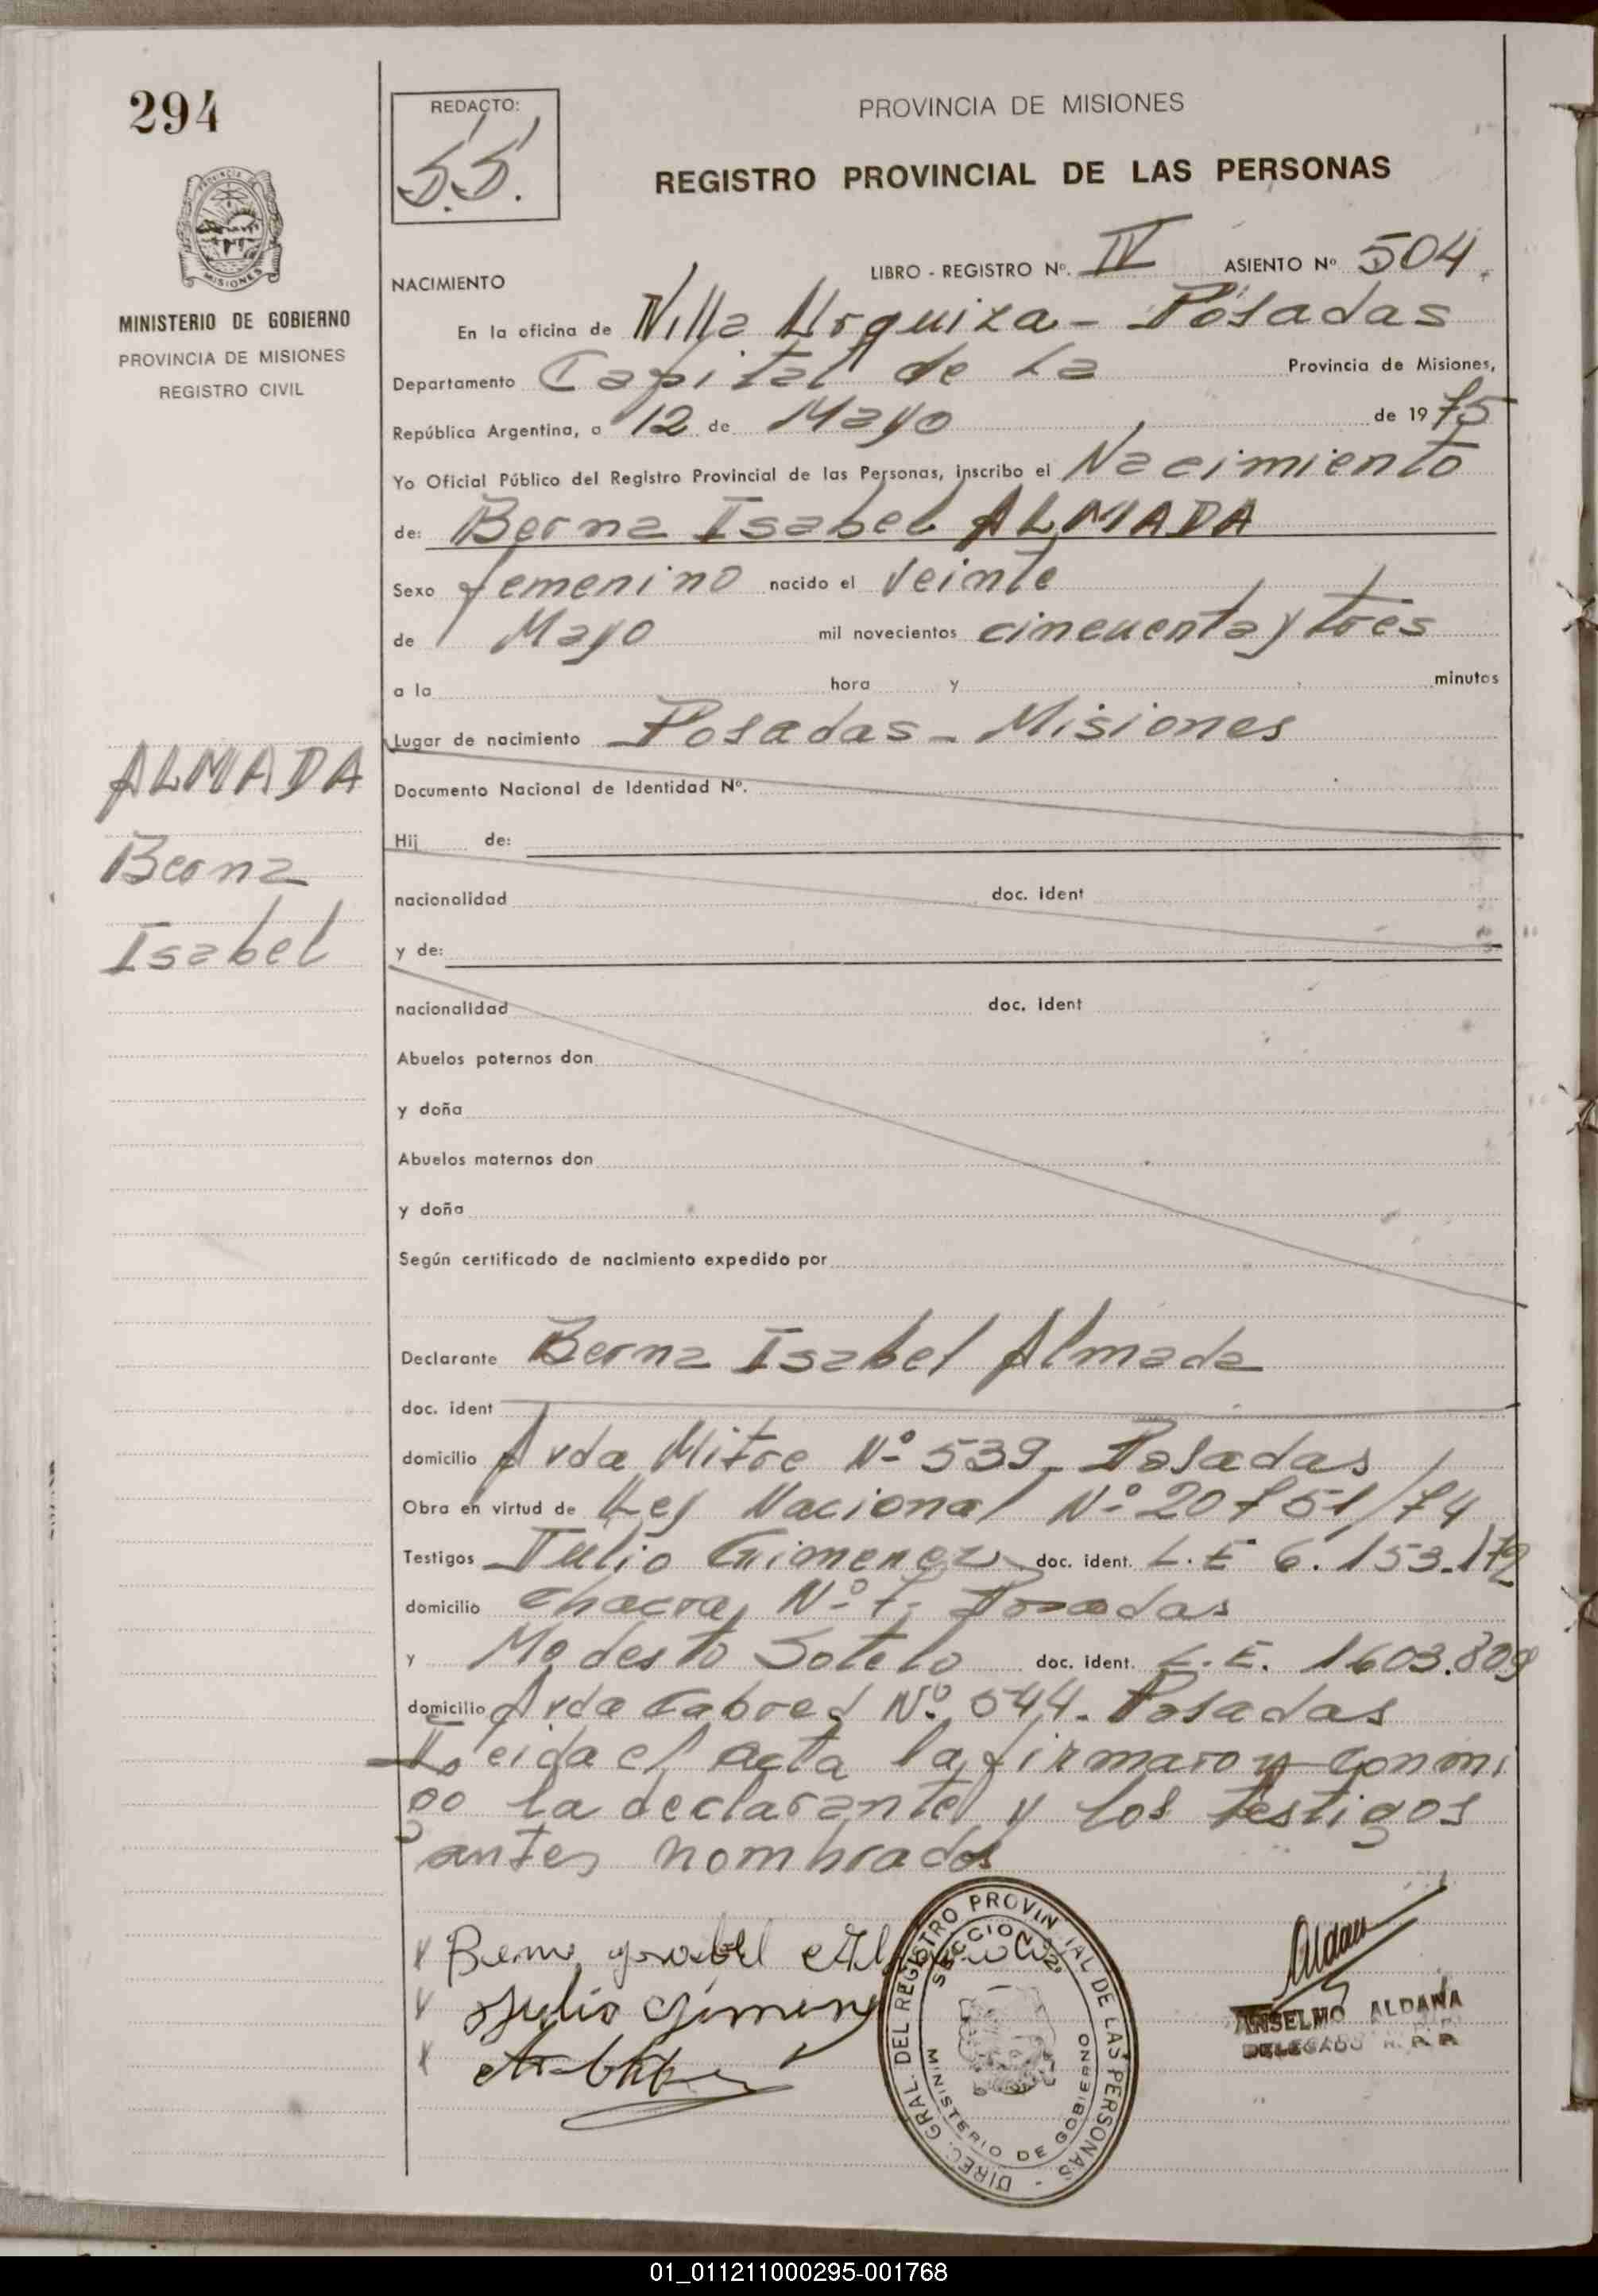 294
REDACTO:
S.S.
PROVINCIA DE MISIONES
REGISTRO PROVINCIAL DE LAS PERSONAS
MISIONES
MINISTERIO DE GOBIERNO
PROVINCIA DE MISIONES
REGISTRO CIVIL
NACIMIENTO
LIBRO - REGISTRO Nº. IV ASIENTO Nº 504.
En la oficina de Villa Urquiza - Posadas
Departamento Capital de La Provincia de Misiones,
República Argentina, a 12 de Mayo de 1975
Yo Oficial Público del Registro Provincial de las Personas, inscribo el Nacimiento
de: Berna Isabel ALMADA
Sexo femenino nacido el veinte
de Mayo mil novecientos cincuenta y tres
a la hora y minutos
Lugar de nacimiento Posadas - Misiones
ALMADA
Berna
Isabel
Documento Nacional de Identidad Nº.
Hij de:
nacionalidad doc. ident
y de:
nacionalidad doc. ident
Abuelos paternos don
y doña
Abuelos maternos don
y doña
Según certificado de nacimiento expedido por
Declarante Berna Isabel Almada
doc. ident
domicilio Avda Mitre Nº 539 - Posadas
Obra en virtud de Ley Nacional Nº 20751/74
Testigos Julio Gimenez doc. ident. L.E 6.153.172
domicilio Chacra Nº 7. Posadas
y Modesto Sotelo doc. ident. L.E. 1603.809
domicilio Avda Cabred Nº 544. Posadas
Leida el acta la firmaron conmi
go la declarante y los testigos
antes nombrados
Julio Gimenez
DIREC. GRAL. DEL REGISTRO PROVINCIAL DE LAS PERSONAS -
SECCION 2ª
MINISTERIO DE GOBIERNO
Aldana
ANSELMO ALDANA
DELEGADO R. P. P.
01_011211000295-001768